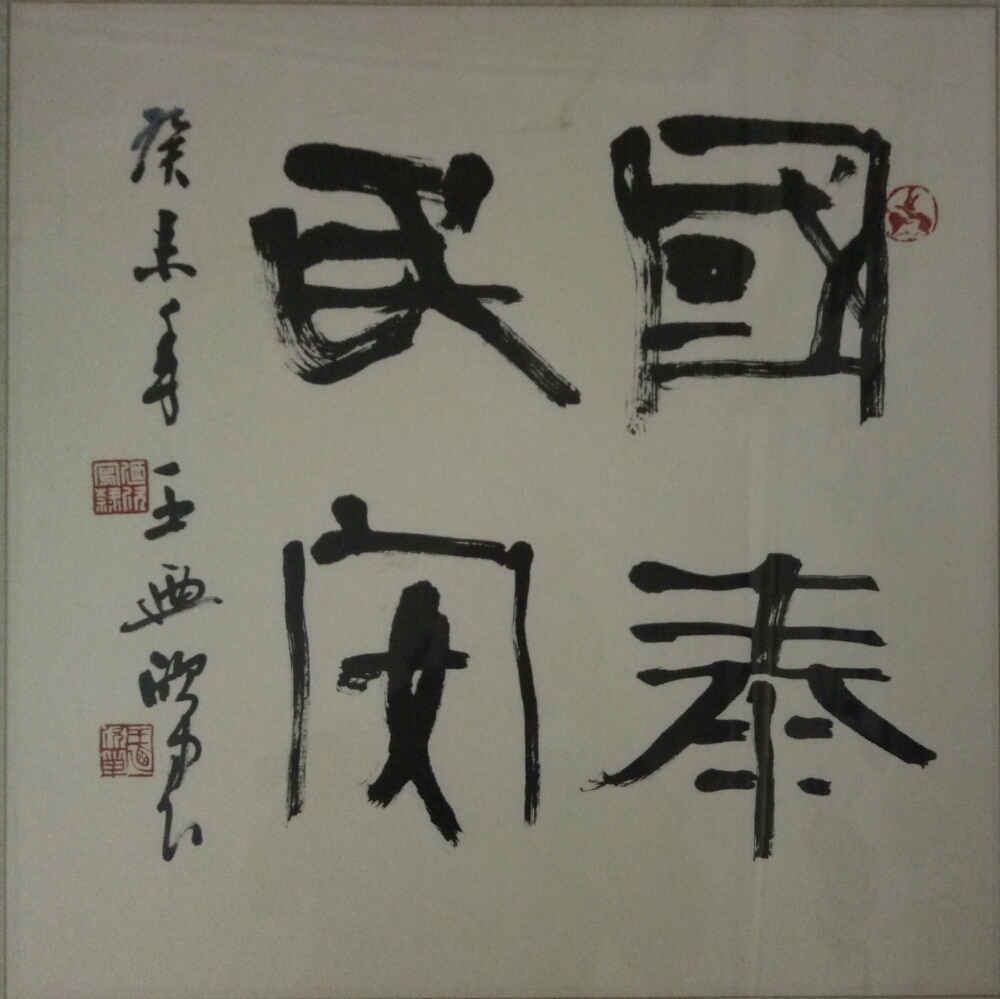 國泰
民安
癸未年王迺欣書